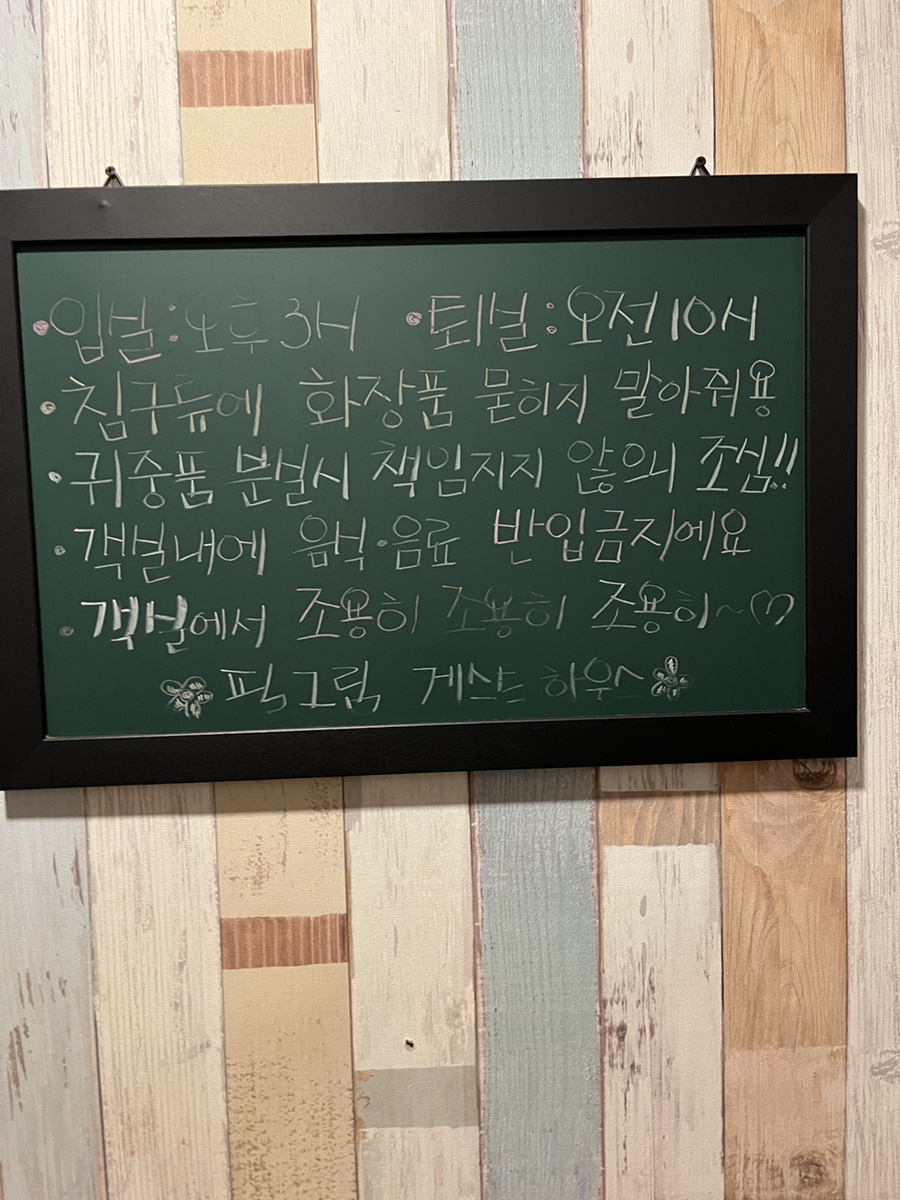 • 입실 : 오후 3시 • 퇴실 : 오전 10시
• 침구류에 화장품 묻히지 말아줘용
• 귀중품 분실시 책임지지 않으니 조심!!
• 객실내에 음식·음료 반입금지에요
• 객실에서 조용히 조용히 조용히~♡
픽그림 게스트 하우스